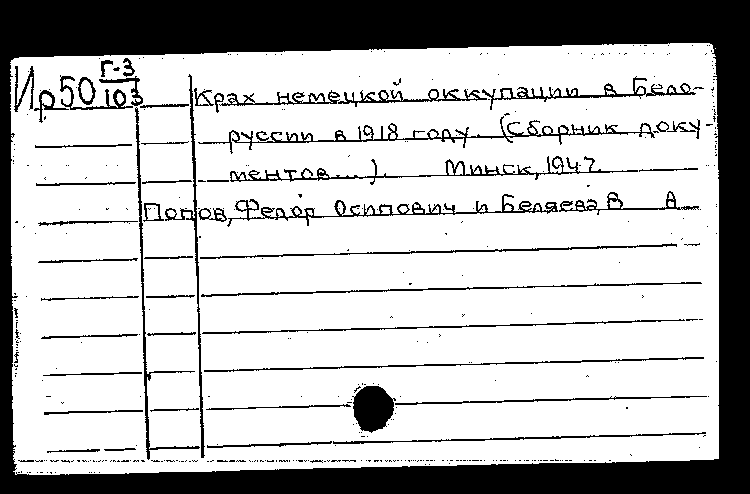 Ир50 Г-3
103
Крах немецкой оккупации в Бело-
руссии в 1918 году. (Сборник доку-
ментов...). Минск, 1947.
Попов, Федор Осипович и Беляева, В А